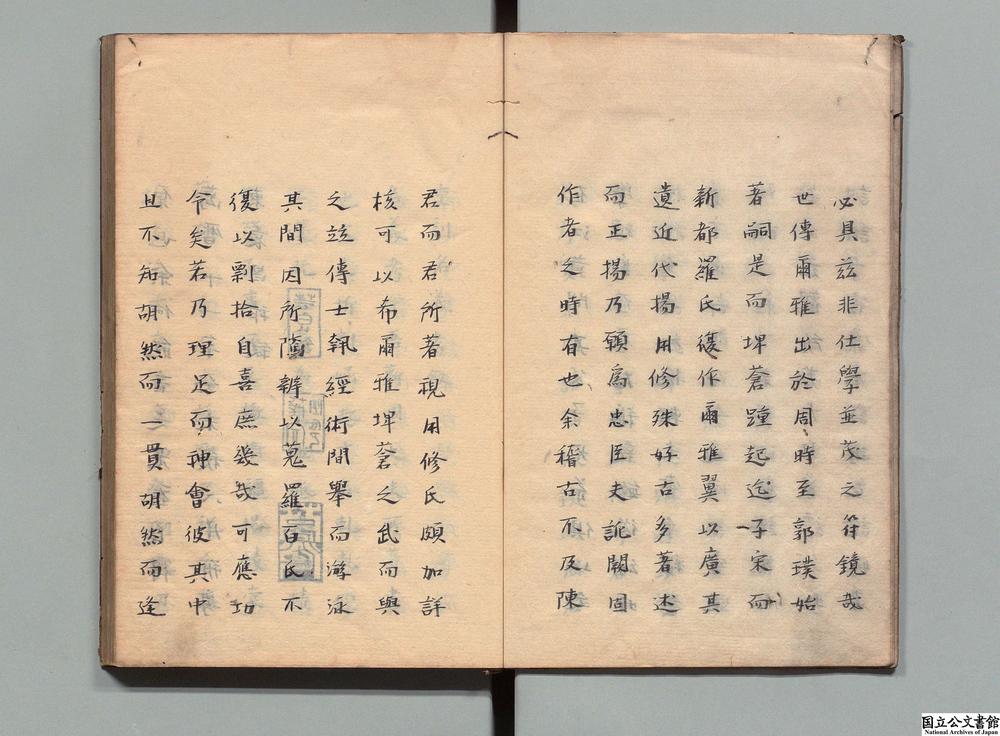 必具茲非仕學並茂之符鏡哉
世傳爾雅出於周時至郭璞始
著嗣是而埤蒼踵起迄于宋而
新都羅氏復作爾雅翼以廣其
遺近代揚用修殊好古多著述
而正揚乃願爲忠臣夫訛闕固
作者之時有也余稽古不及陳
君而君所著視用修氏頗加詳
核可以希爾雅埤蒼之武而與
之竝傳士執經術間舉而游泳
其間因所隲辨以蒐羅百氏不
復以剽拾自喜庶幾哉可應功
令矣若乃理足而神會彼其中
且不知胡然而一貫胡然而逢
国立公文書館
National Archives of Japan